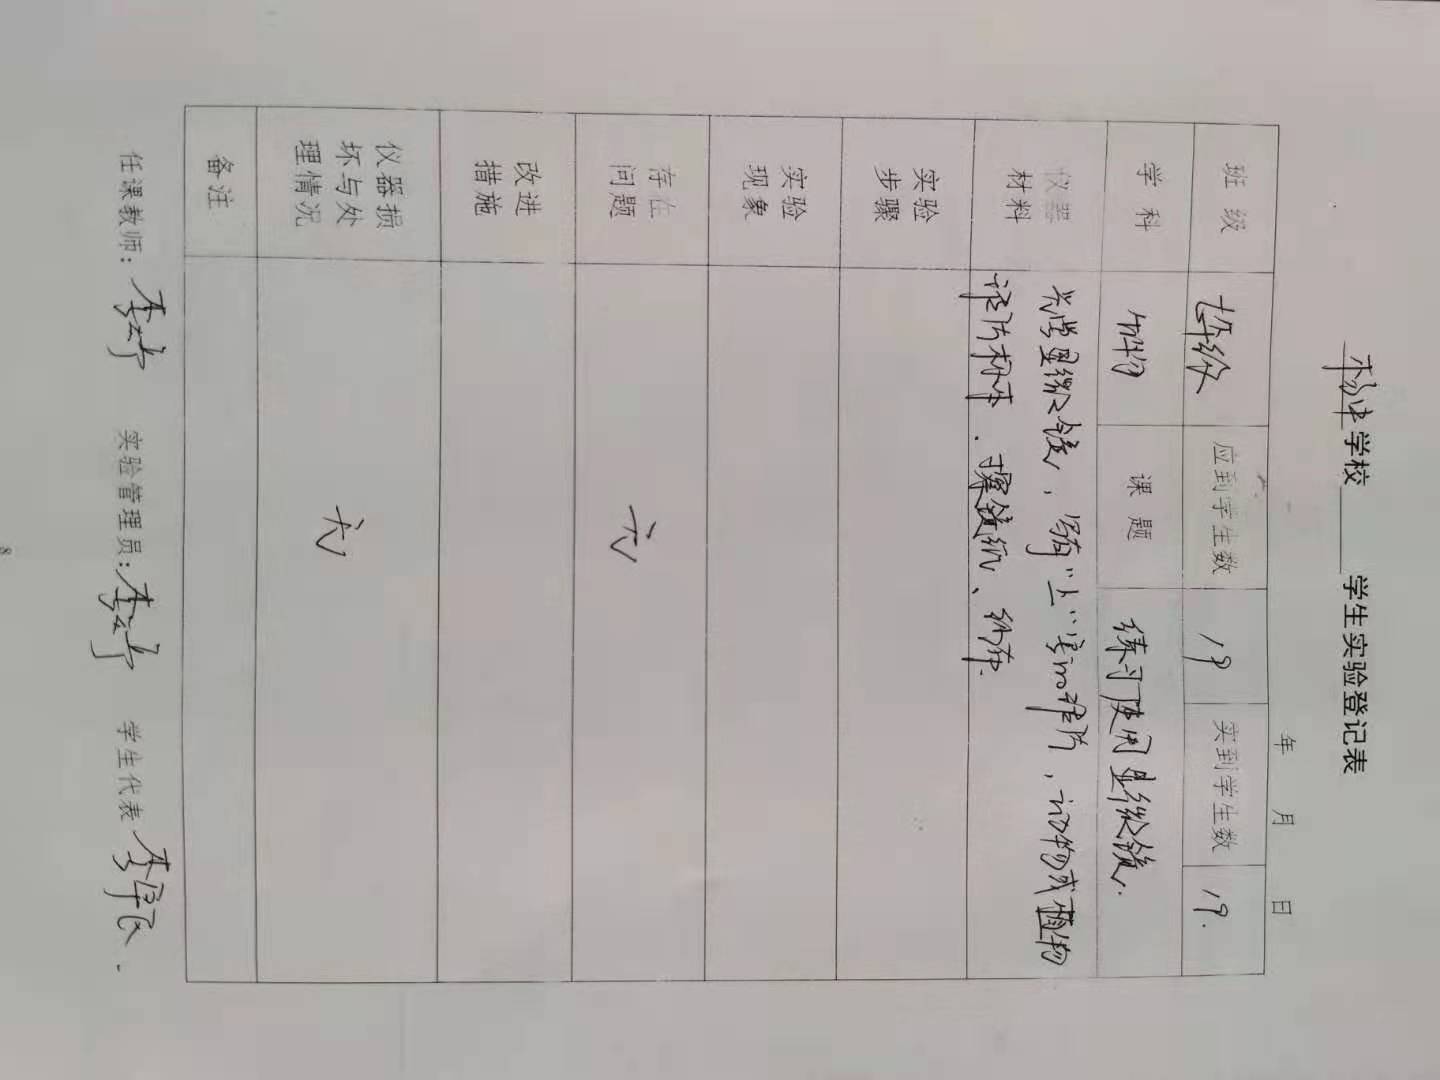 学校 学生实验登记表
年 月 日
班级 七年级 应到学生数 19 实到学生数 19.
学科 生物 课题 练习使用显微镜.
仪器材料 光学显微镜, 写有“上”字的玻片, 动物或植物
玻片标本. 擦镜纸、纱布.
实验步骤
实验现象
存在问题 无
改进措施
仪器损坏与处理情况 无
备注
任课教师: 实验管理员: 学生代表
8